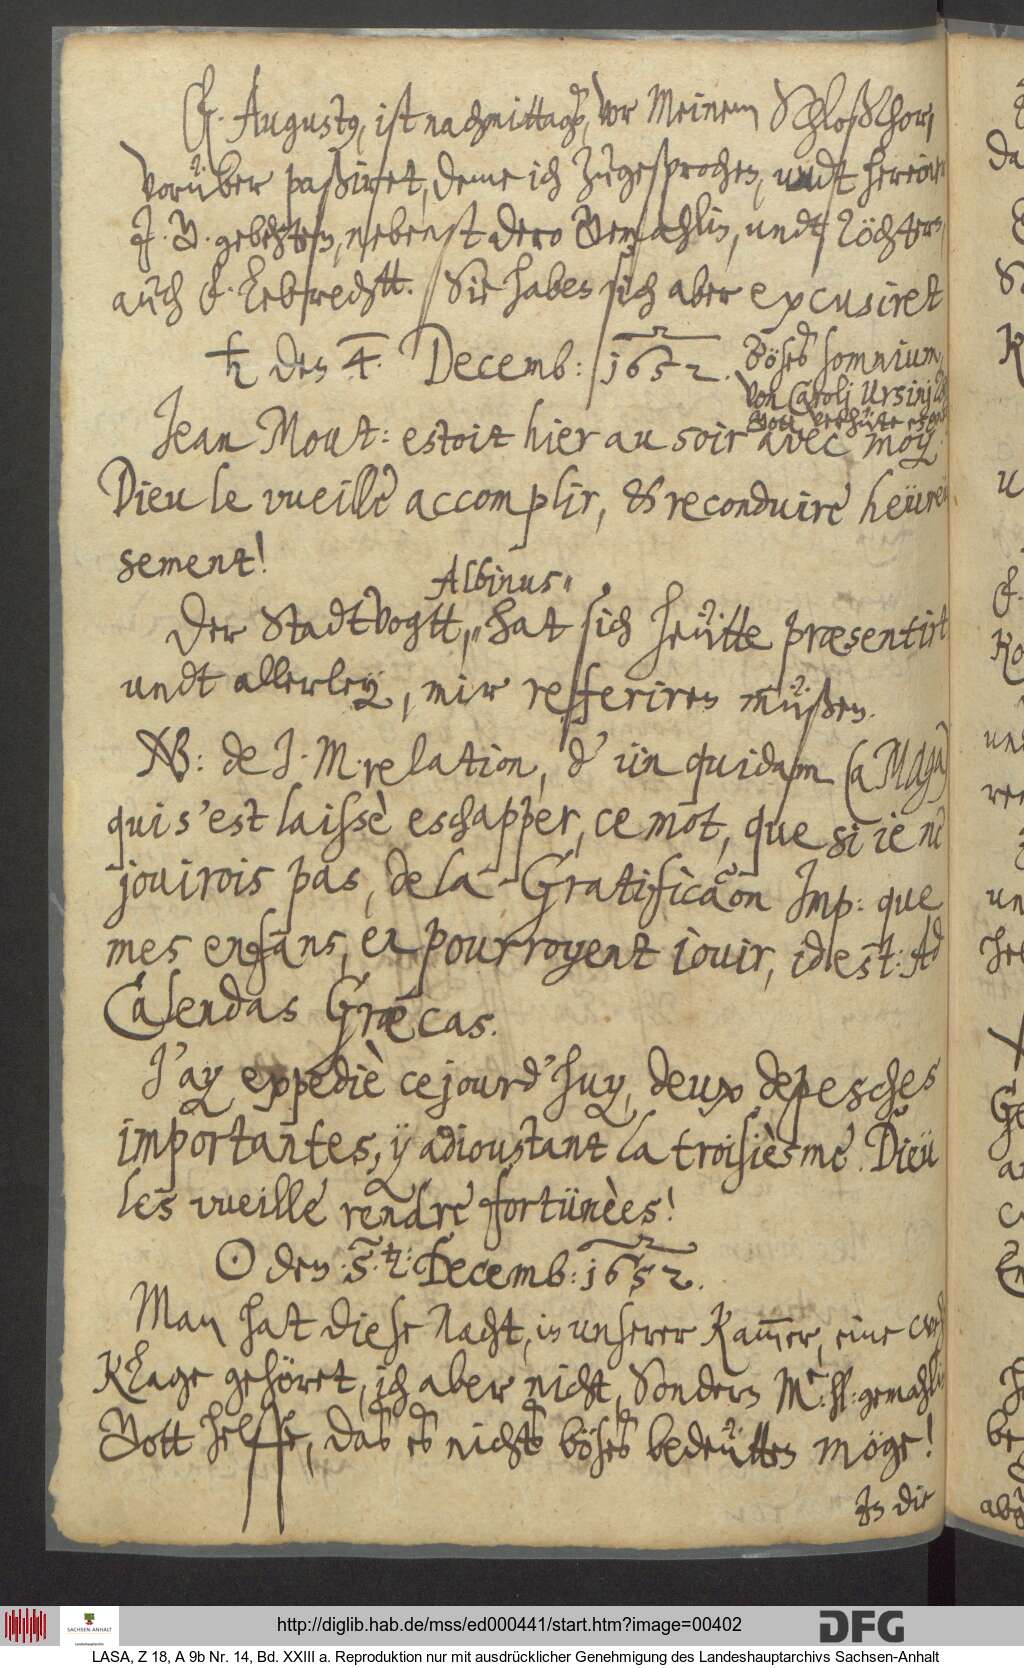 F. Augustq, ist nachmittags, vor Meinem Schloßthor,
vorüber paßiret, deme ich zugesprochen, undt hereine
J. G. gebehten, nebenst dero Gemahlin, undt Töchtern,
auch F. Lebrechtt. Sie haben sich aber excusiret
♄ den 4. Decemb: 1652. Böses somnium,
von Caroli Ursinj
Gott verhüte es
Jean Mout: estoit hier au soir avec moy.
Dieu le vueille accomplir, & reconduire heüreü
sement!
Albinus"
Der StadtVogtt," hat sich heütte præsentirt
undt allerley, mir referiren müßen.
NB: de J. M. relation, d' ün quidam (a Maga)
qui s'est laissè eschapper, ce mot, que si ie ne
jouirois pas, de la Gratificãon Imp: que
mes enfans, en pourroyent iouir, id est: Ad
Calendas Græcas.
J'ay expediè ce jourd'huy, deux depesches
importantes, ÿ adioustant la troisiesme. Dieü
les vueille rendre fortünèes!
☉ den 5. Decemb: 1652.
Man hat diese Nacht, in unserer Kam̅er, eine
Klage gehöret, ich aber nicht, Sondern Me: hl: gemahlin
Gott helffe, das es nichts böses bedeütten möge!
In die
http://diglib.hab.de/mss/ed000441/start.htm?image=00402
SACHSEN-ANHALT
Landeshauptarchiv
DFG
LASA, Z 18, A 9b Nr. 14, Bd. XXIII a. Reproduktion nur mit ausdrücklicher Genehmigung des Landeshauptarchivs Sachsen-Anhalt